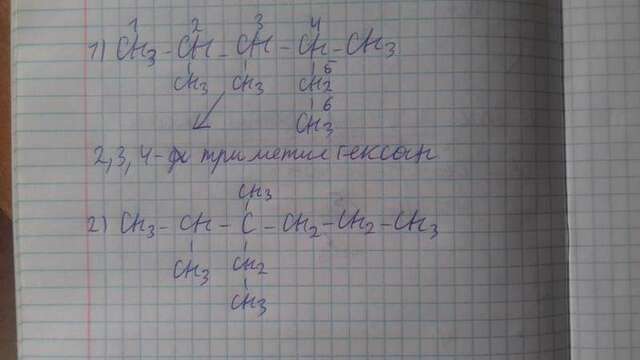 1 2 3 4
1) CH3 - CH - CH - CH - CH3
CH3 CH3 CH2 5
CH3 6
2,3,4 - триметилгексан
CH3
2) CH3 - CH - C - CH2 - CH2 - CH3
CH3 CH2
CH3